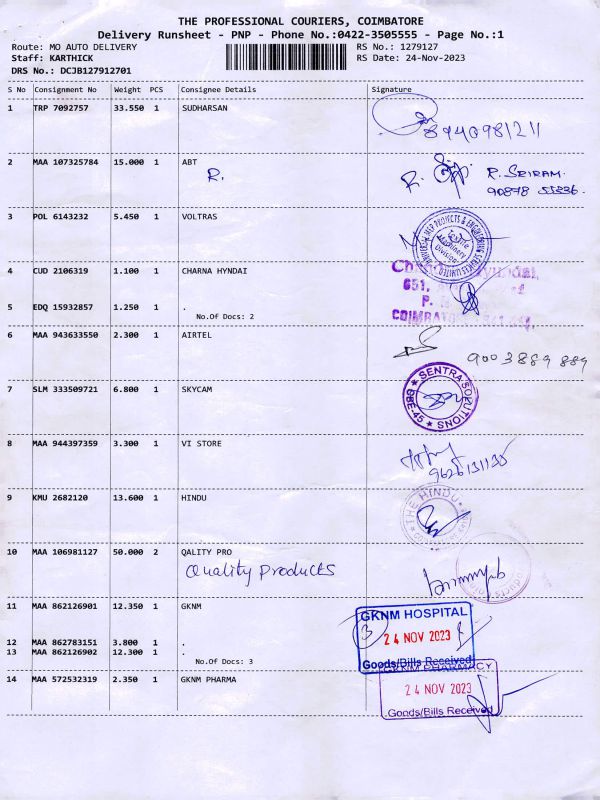 THE PROFESSIONAL COURIERS, COIMBATORE
Delivery Runsheet - PNP - Phone No.:0422-3505555 - Page No.:1
Route: MO AUTO DELIVERY
RS No.: 1279127
Staff: KARTHICK
RS Date: 24-Nov-2023
DRS No.: DCJB127912701
S No Consignment No Weight PCS Consignee Details Signature
1 TRP 7092757 33.550 1 SUDHARSAN
8940981211
2 MAA 107325784 15.000 1 ABT
R.
R. R. SRIRAM.
90878 55336.
3 POL 6143232 5.450 1 VOLTRAS
MEP PROJECTS & ENGINEERING SERVICES LIMITED
Textile Machinery Division
4 CUD 2106319 1.100 1 CHARNA HYNDAI
651,
P.
COIMBATORE
5 EDQ 15932857 1.250 1 .
No.Of Docs: 2
6 MAA 943633550 2.300 1 AIRTEL
9003889889
7 SLM 333509721 6.800 1 SKYCAM
SENTRA SOLUTIONS
CBE-45
8 MAA 944397359 3.300 1 VI STORE
9626131135
9 KMU 2682120 13.600 1 HINDU
THE HINDU
10 MAA 106981127 50.000 2 QALITY PRO
Quality Products
11 MAA 862126901 12.350 1 GKNM
GKNM HOSPITAL
3 24 NOV 2023
Goods/Bills Received
12 MAA 862783151 3.800 1 .
13 MAA 862126902 12.300 1 .
No.Of Docs: 3
14 MAA 572532319 2.350 1 GKNM PHARMA
GKNM PHARMACY
24 NOV 2023
Goods/Bills Received